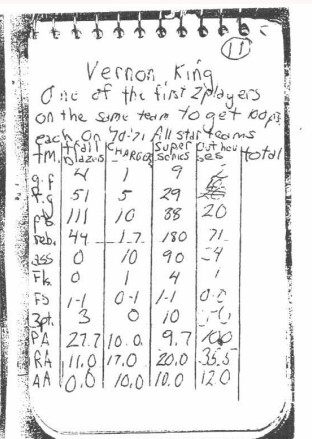 11
Vernon King
One of the first 2 players
on the same team to get 100 pts
each on 70-71 All star teams
TM. Trail Blazers CHARGERS Super Sonics total
g.f 4 1 9
f.g 51 5 29
pts. 111 10 88 20
reb. 44 17 180 71
ass 0 10 90
Fls. 0 1 4 1
FS 1-1 0-1 1-1 0-0
3pt. 3 0 10
PA 27.7 10.0 9.7
RA 11.0 17.0 20.0 35.5
AA 0.0 10.0 10.0 12.0